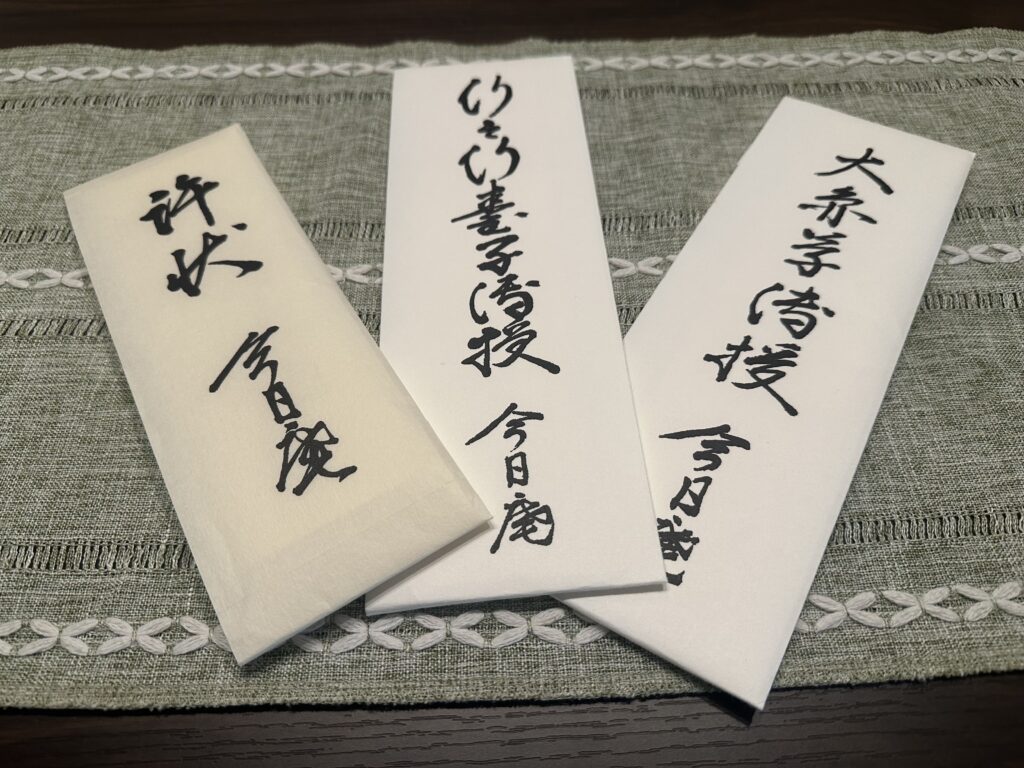 許状 今日庵
行之行臺子傳授 今日庵
大圓草傳授 今日庵